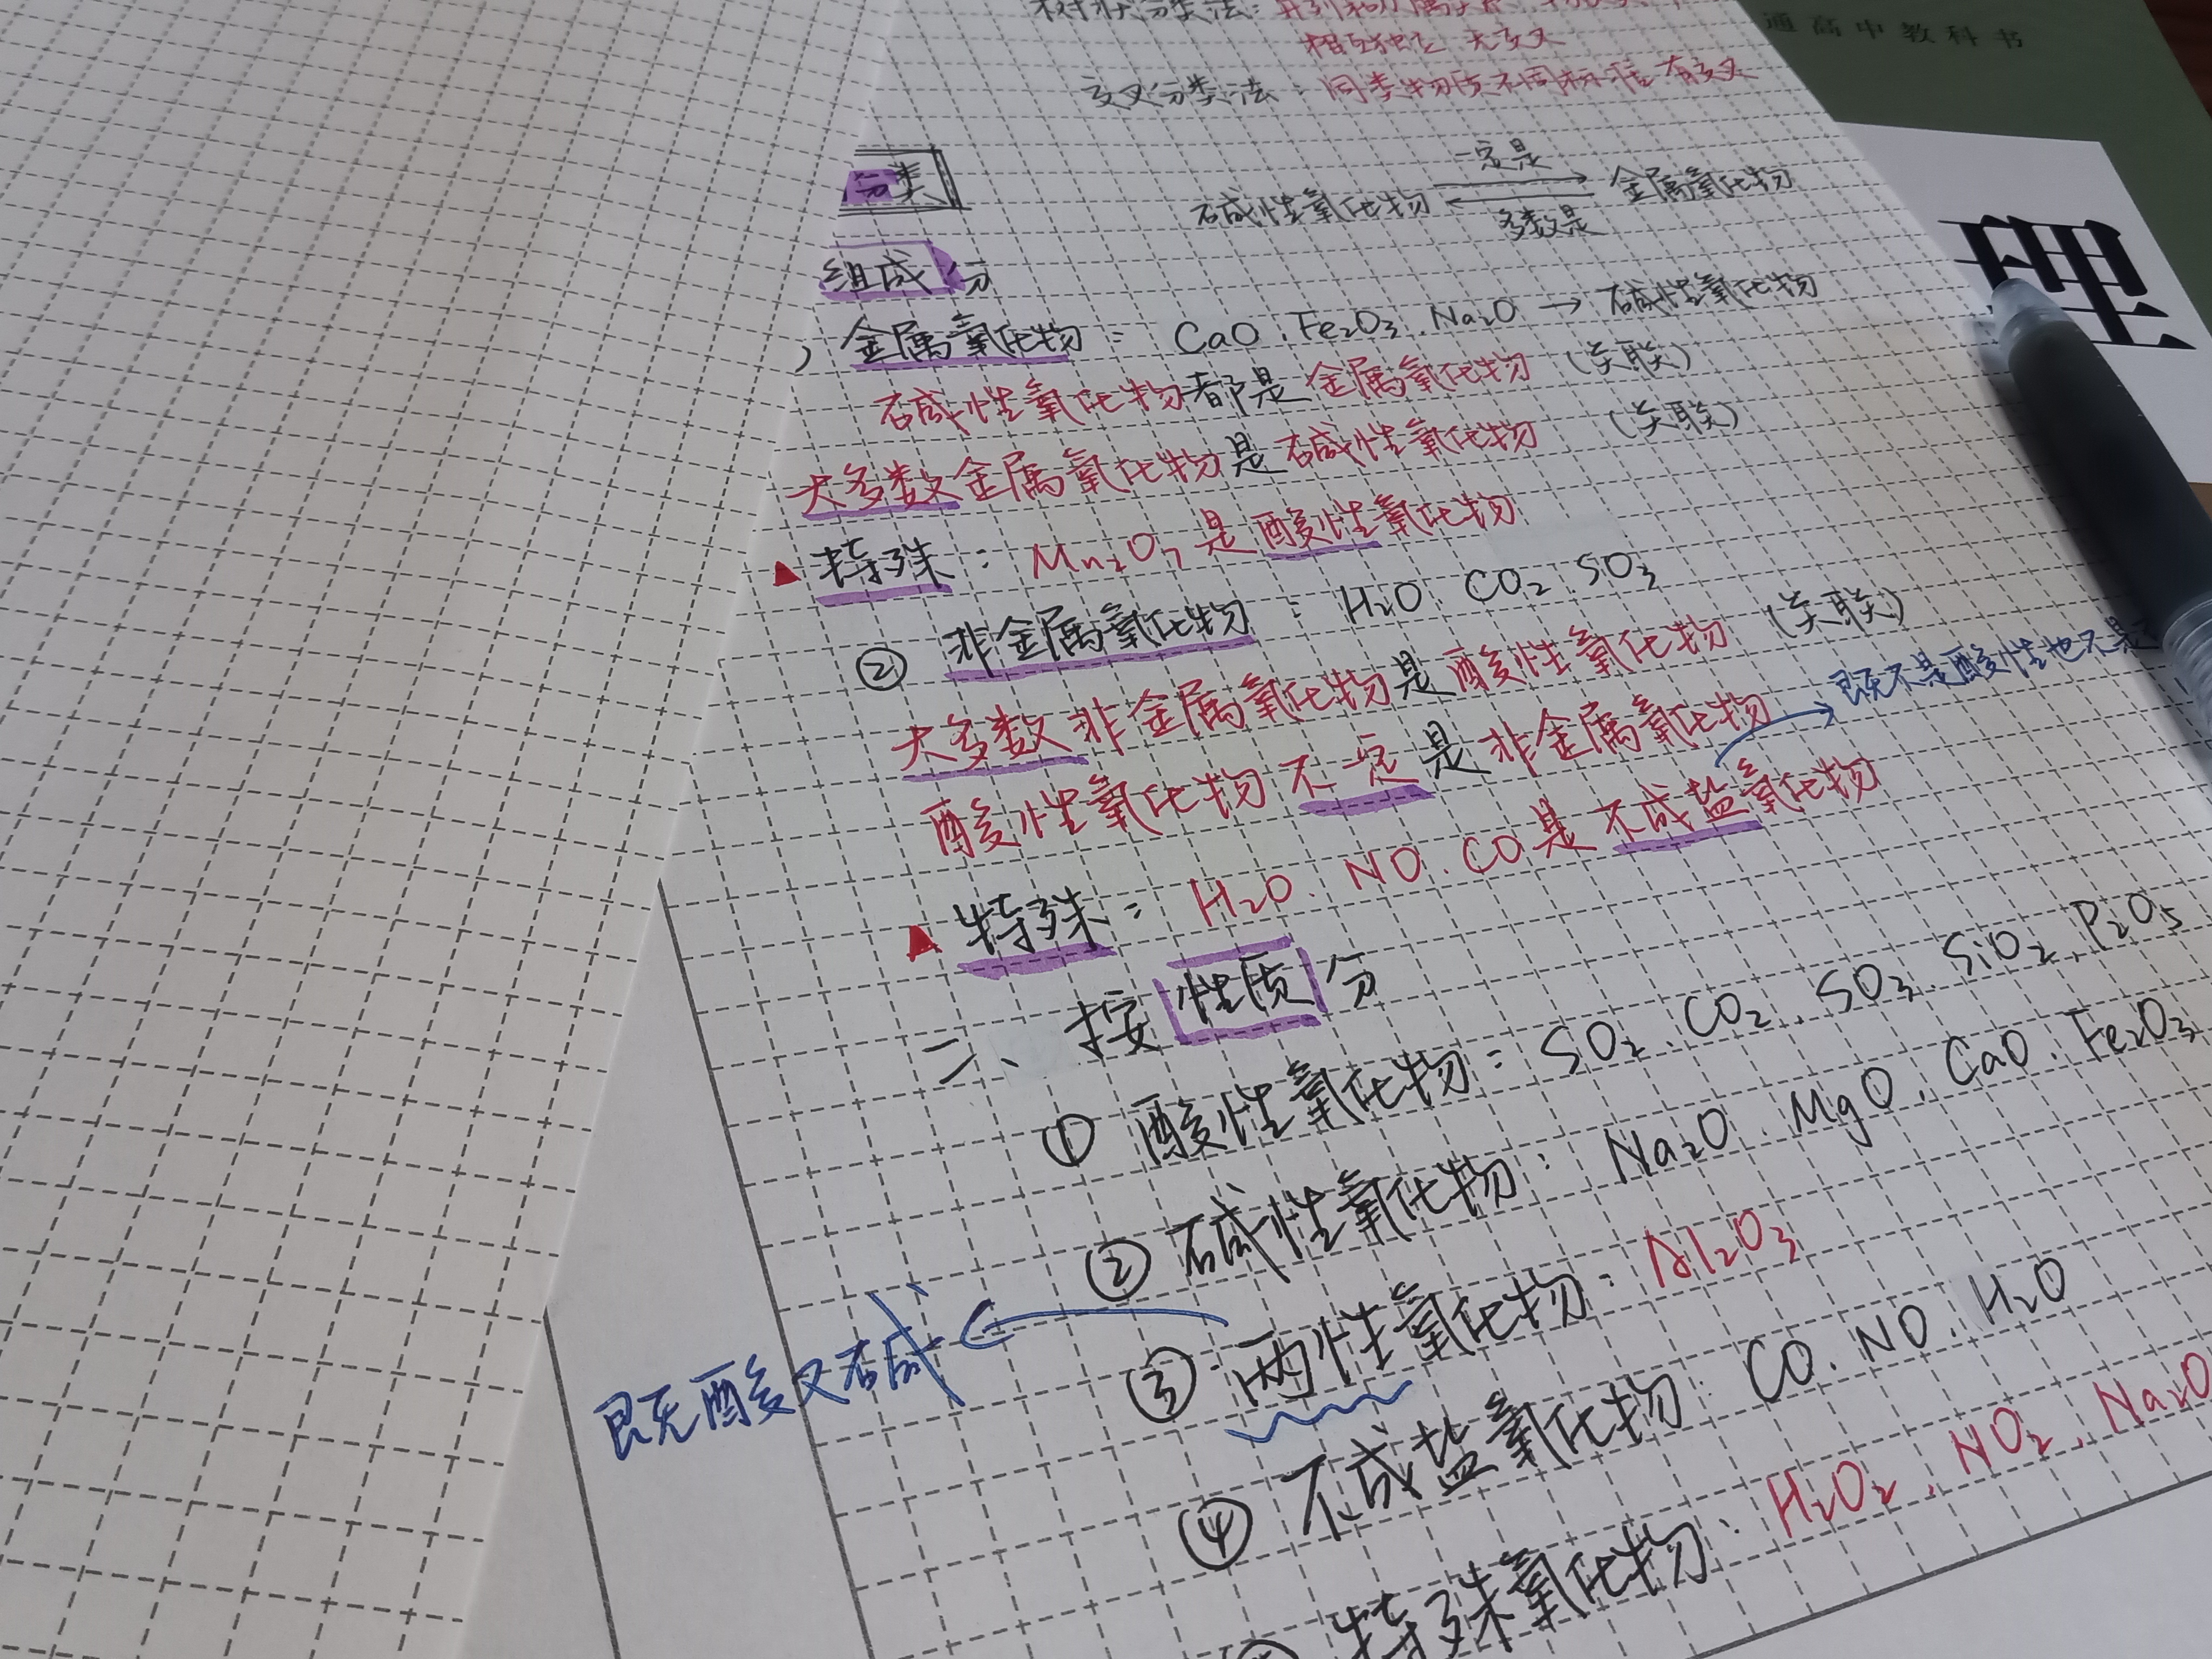 树状分类法：并列和从属关系
相互独立 无交叉
交叉分类法：同类物质不同标准 有交叉
通高中教科书
理
分类
碱性氧化物 一定是 多数是 金属氧化物
组成分
金属氧化物：CaO . Fe₂O₃ . Na₂O → 碱性氧化物
碱性氧化物都是金属氧化物（关联）
大多数金属氧化物是碱性氧化物（关联）
▲特殊：Mn₂O₇是酸性氧化物
② 非金属氧化物：H₂O、CO₂、SO₃
大多数非金属氧化物是酸性氧化物（关联）
酸性氧化物不一定是非金属氧化物
既不是酸性也不是
▲特殊：H₂O、NO、CO是不成盐氧化物
二、按性质分
① 酸性氧化物：SO₂、CO₂、SO₃、SiO₂、P₂O₅
② 碱性氧化物：Na₂O、MgO、CaO、Fe₂O₃
③ 两性氧化物：Al₂O₃
既酸又碱
④ 不成盐氧化物：CO、NO、H₂O
特殊氧化物：H₂O₂、NO₂、Na₂O